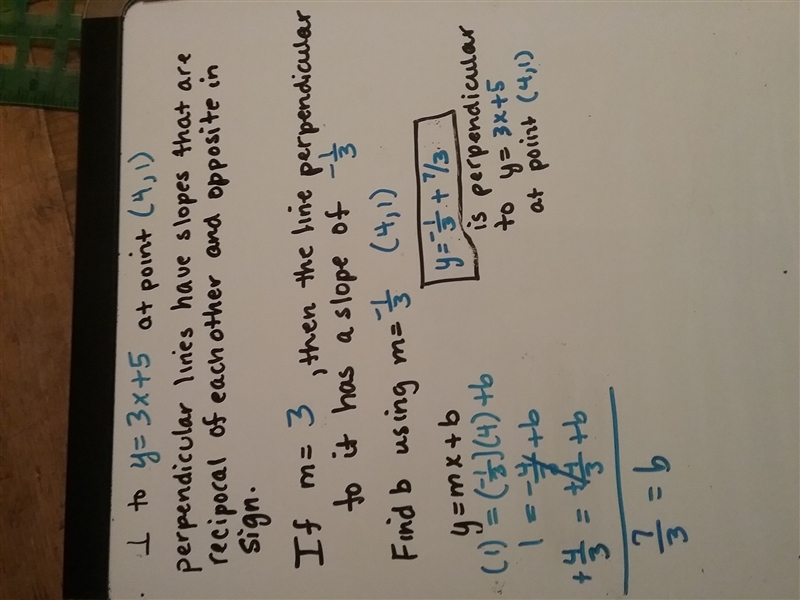 ⊥ to y=3x+5 at point (4,1)
perpendicular lines have slopes that are
recipocal of each other and opposite in
sign.
If m= 3 , then the line perpendicular
to it has a slope of -1/3
Find b using m= -1/3 (4,1)
y=mx+b
(1) = (-1/3)(4)+b
1 = -4/3+b
+4/3 = +4/3 +b
7/3 = b
y= -1/3 + 7/3
is perpendicular
to y= 3x+5
at point (4,1)